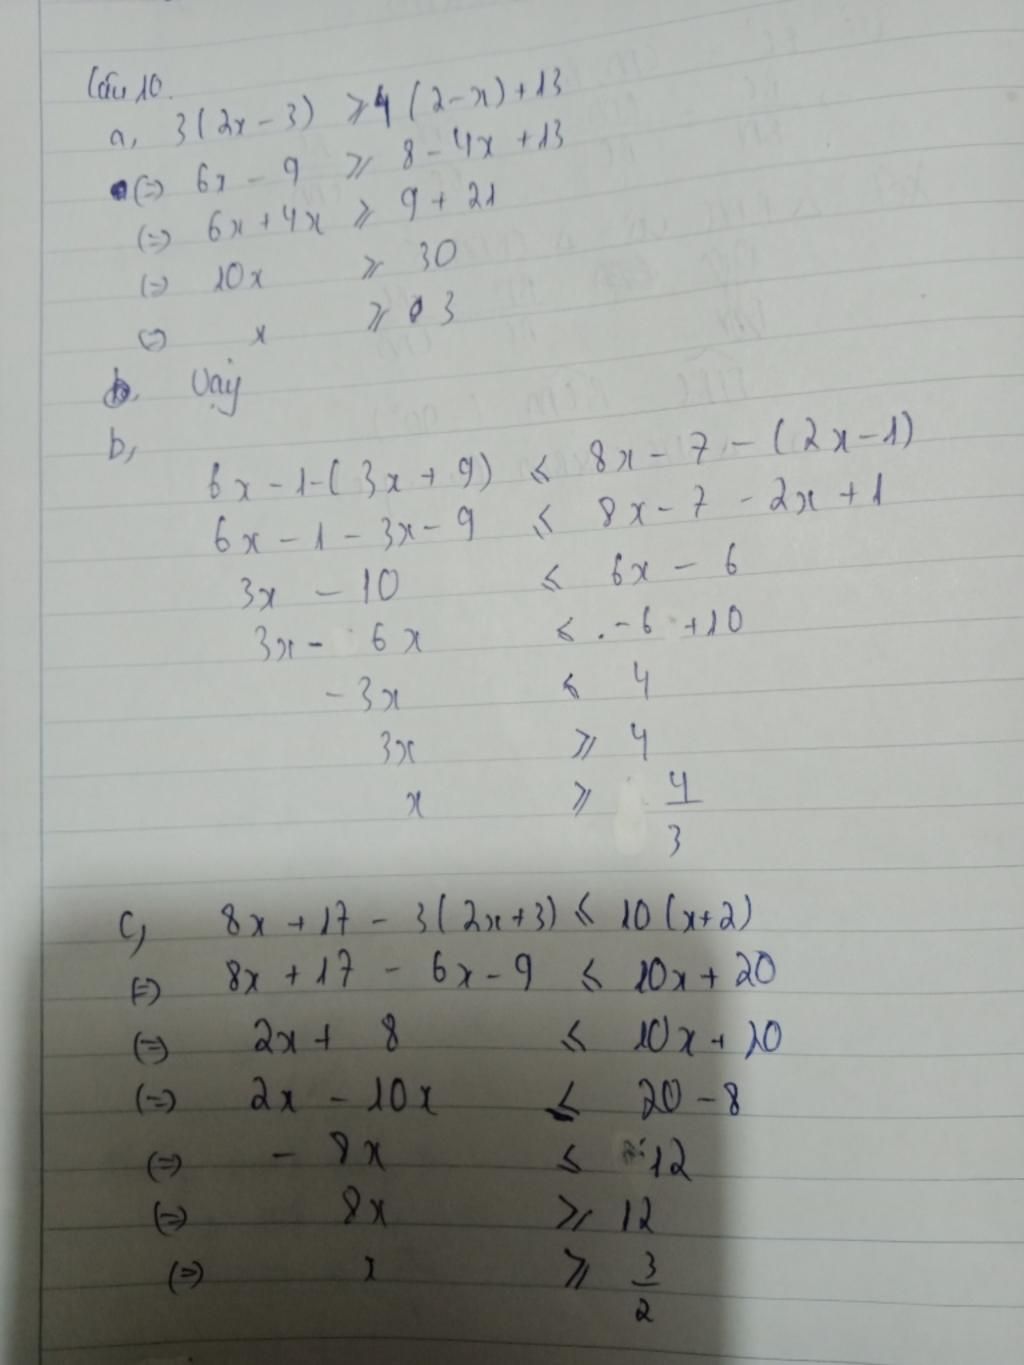 Câu 10.
a, 3(2x - 3) ⩾ 4(2-x)+13
(=) 6x - 9 ⩾ 8 - 4x +13
(=) 6x + 4x ⩾ 9 + 21
(=) 10x ⩾ 30
(=) x ⩾ 3
b. Vậy
b,
6x-1-(3x+9) ⩽ 8x-7-(2x-1)
6x-1-3x-9 ⩽ 8x-7-2x+1
3x - 10 ⩽ 6x - 6
3x - 6x ⩽ -6 +10
-3x ⩽ 4
3x ⩾ 4
x ⩾ 4/3
c, 8x+17 - 3(2x+3) ⩽ 10(x+2)
(=) 8x+17 - 6x-9 ⩽ 10x+20
(=) 2x + 8 ⩽ 10x+20
(=) 2x - 10x ⩽ 20-8
(=) - 8x ⩽ 12
(=) 8x ⩾ 12
(=) x ⩾ 3/2